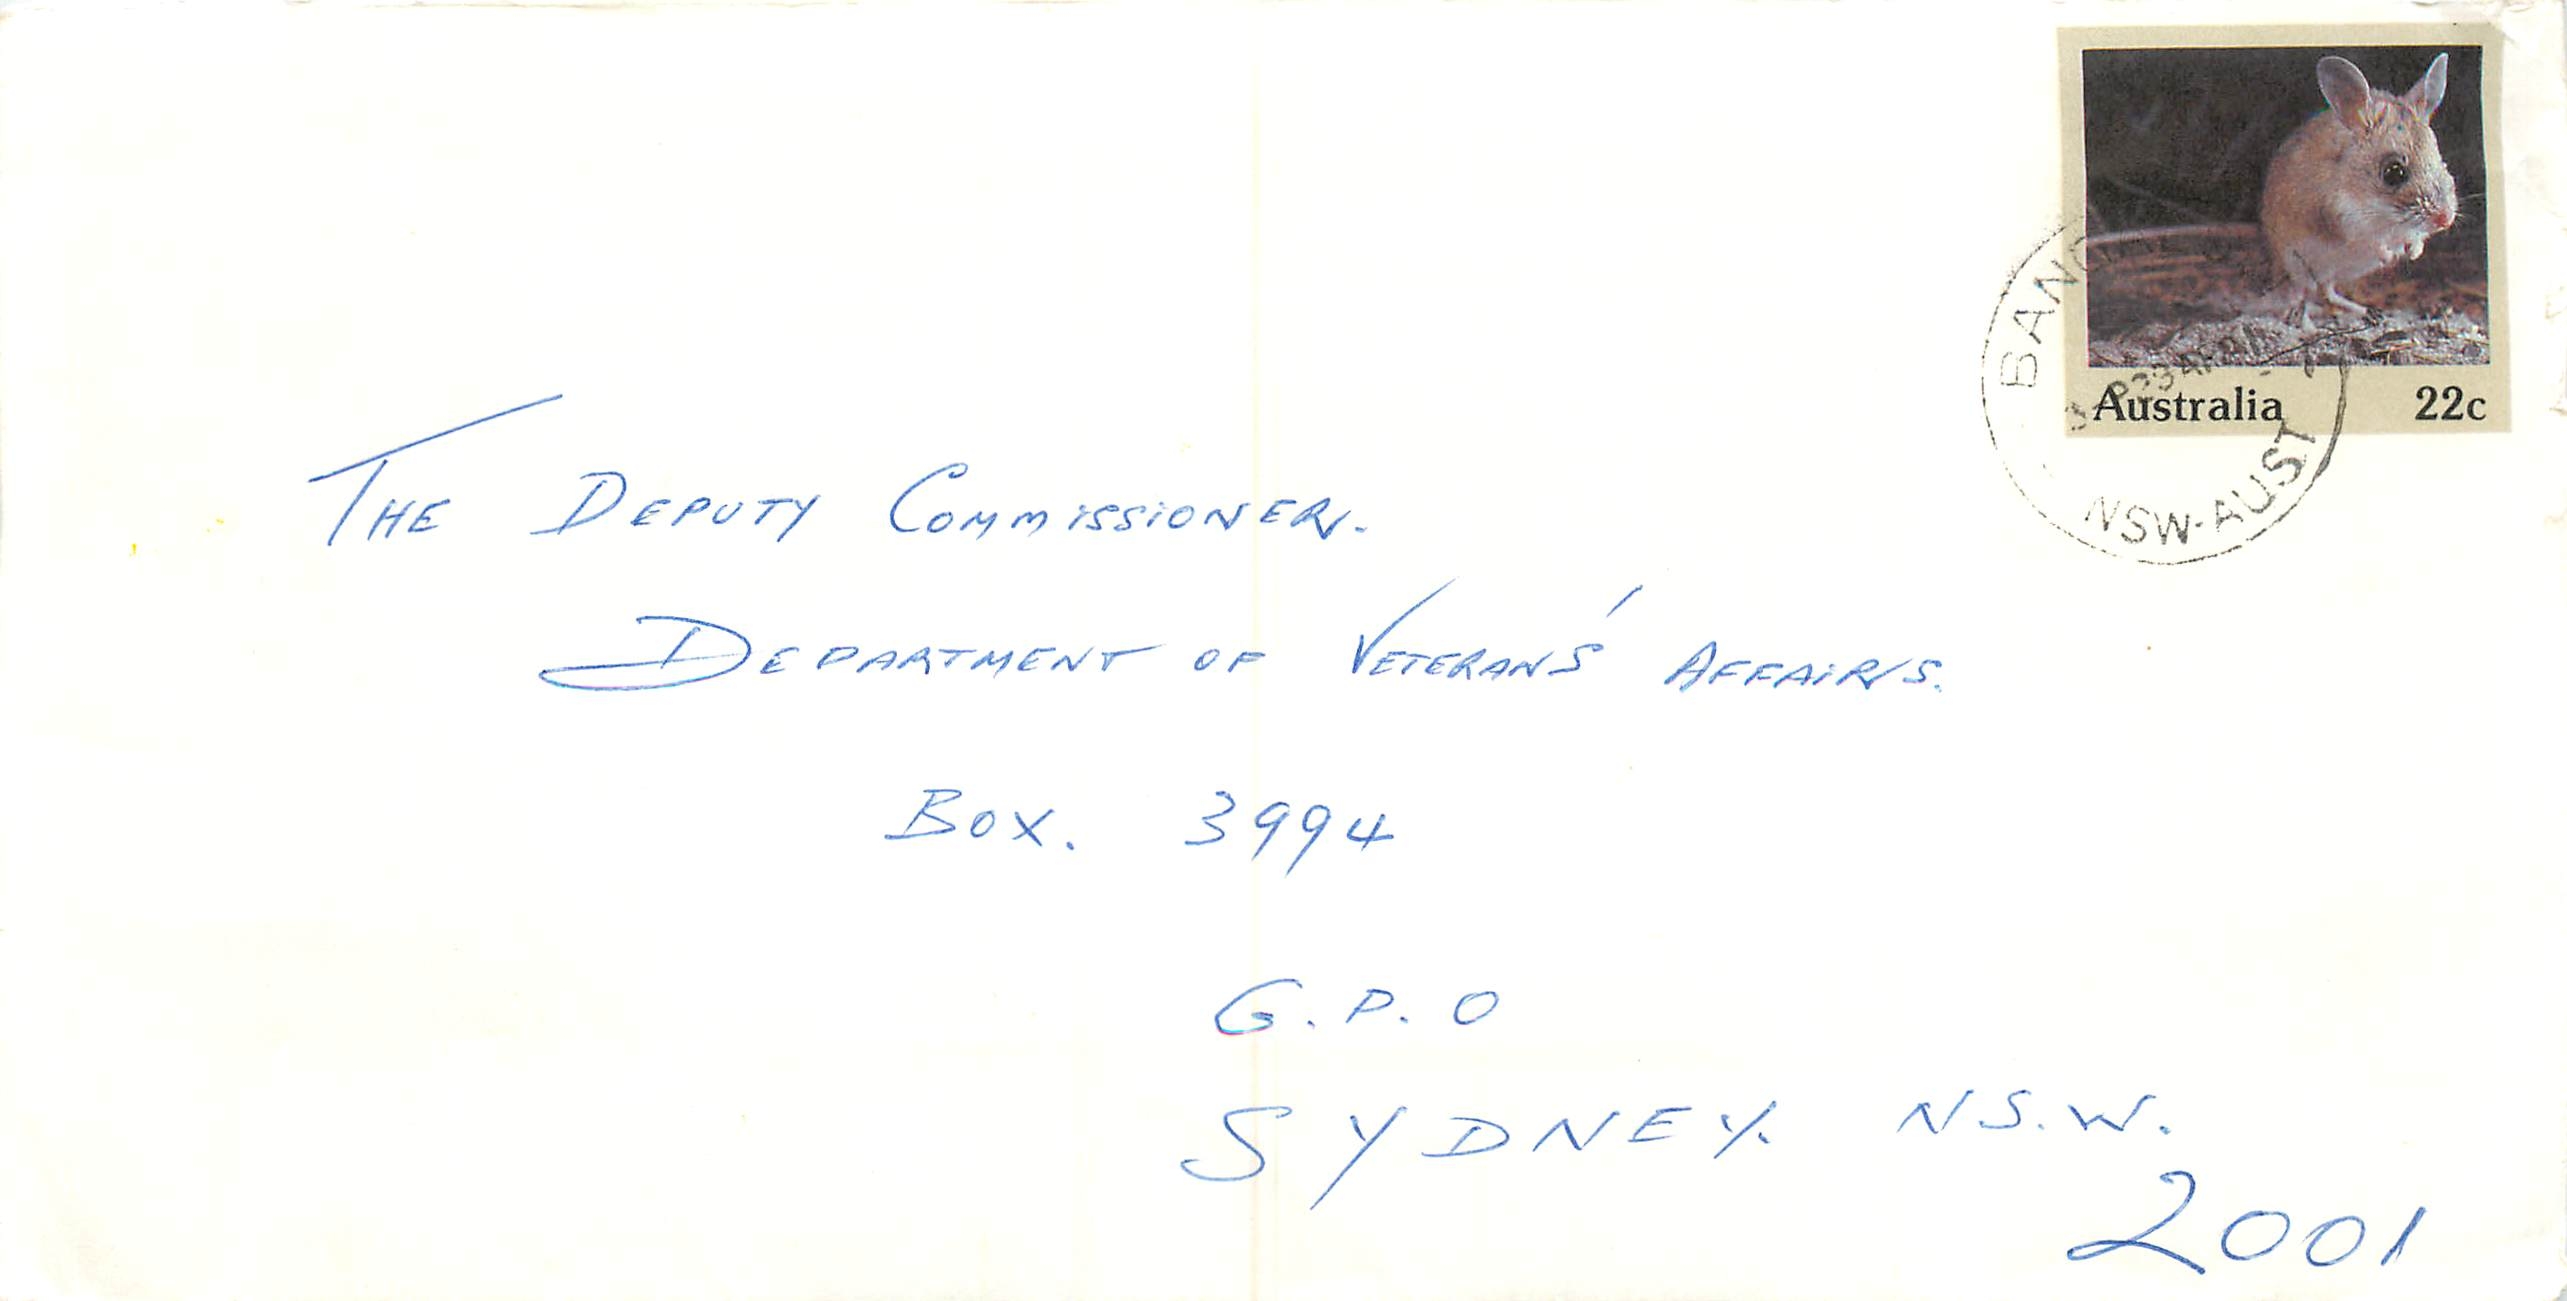 Australia 22c
NSW-AUST
THE DEPUTY COMMISSIONER.
DEPARTMENT OF VETERAN'S AFFAIRS.
BOX. 3994
G.P.O
SYDNEY. N.S.W.
2001